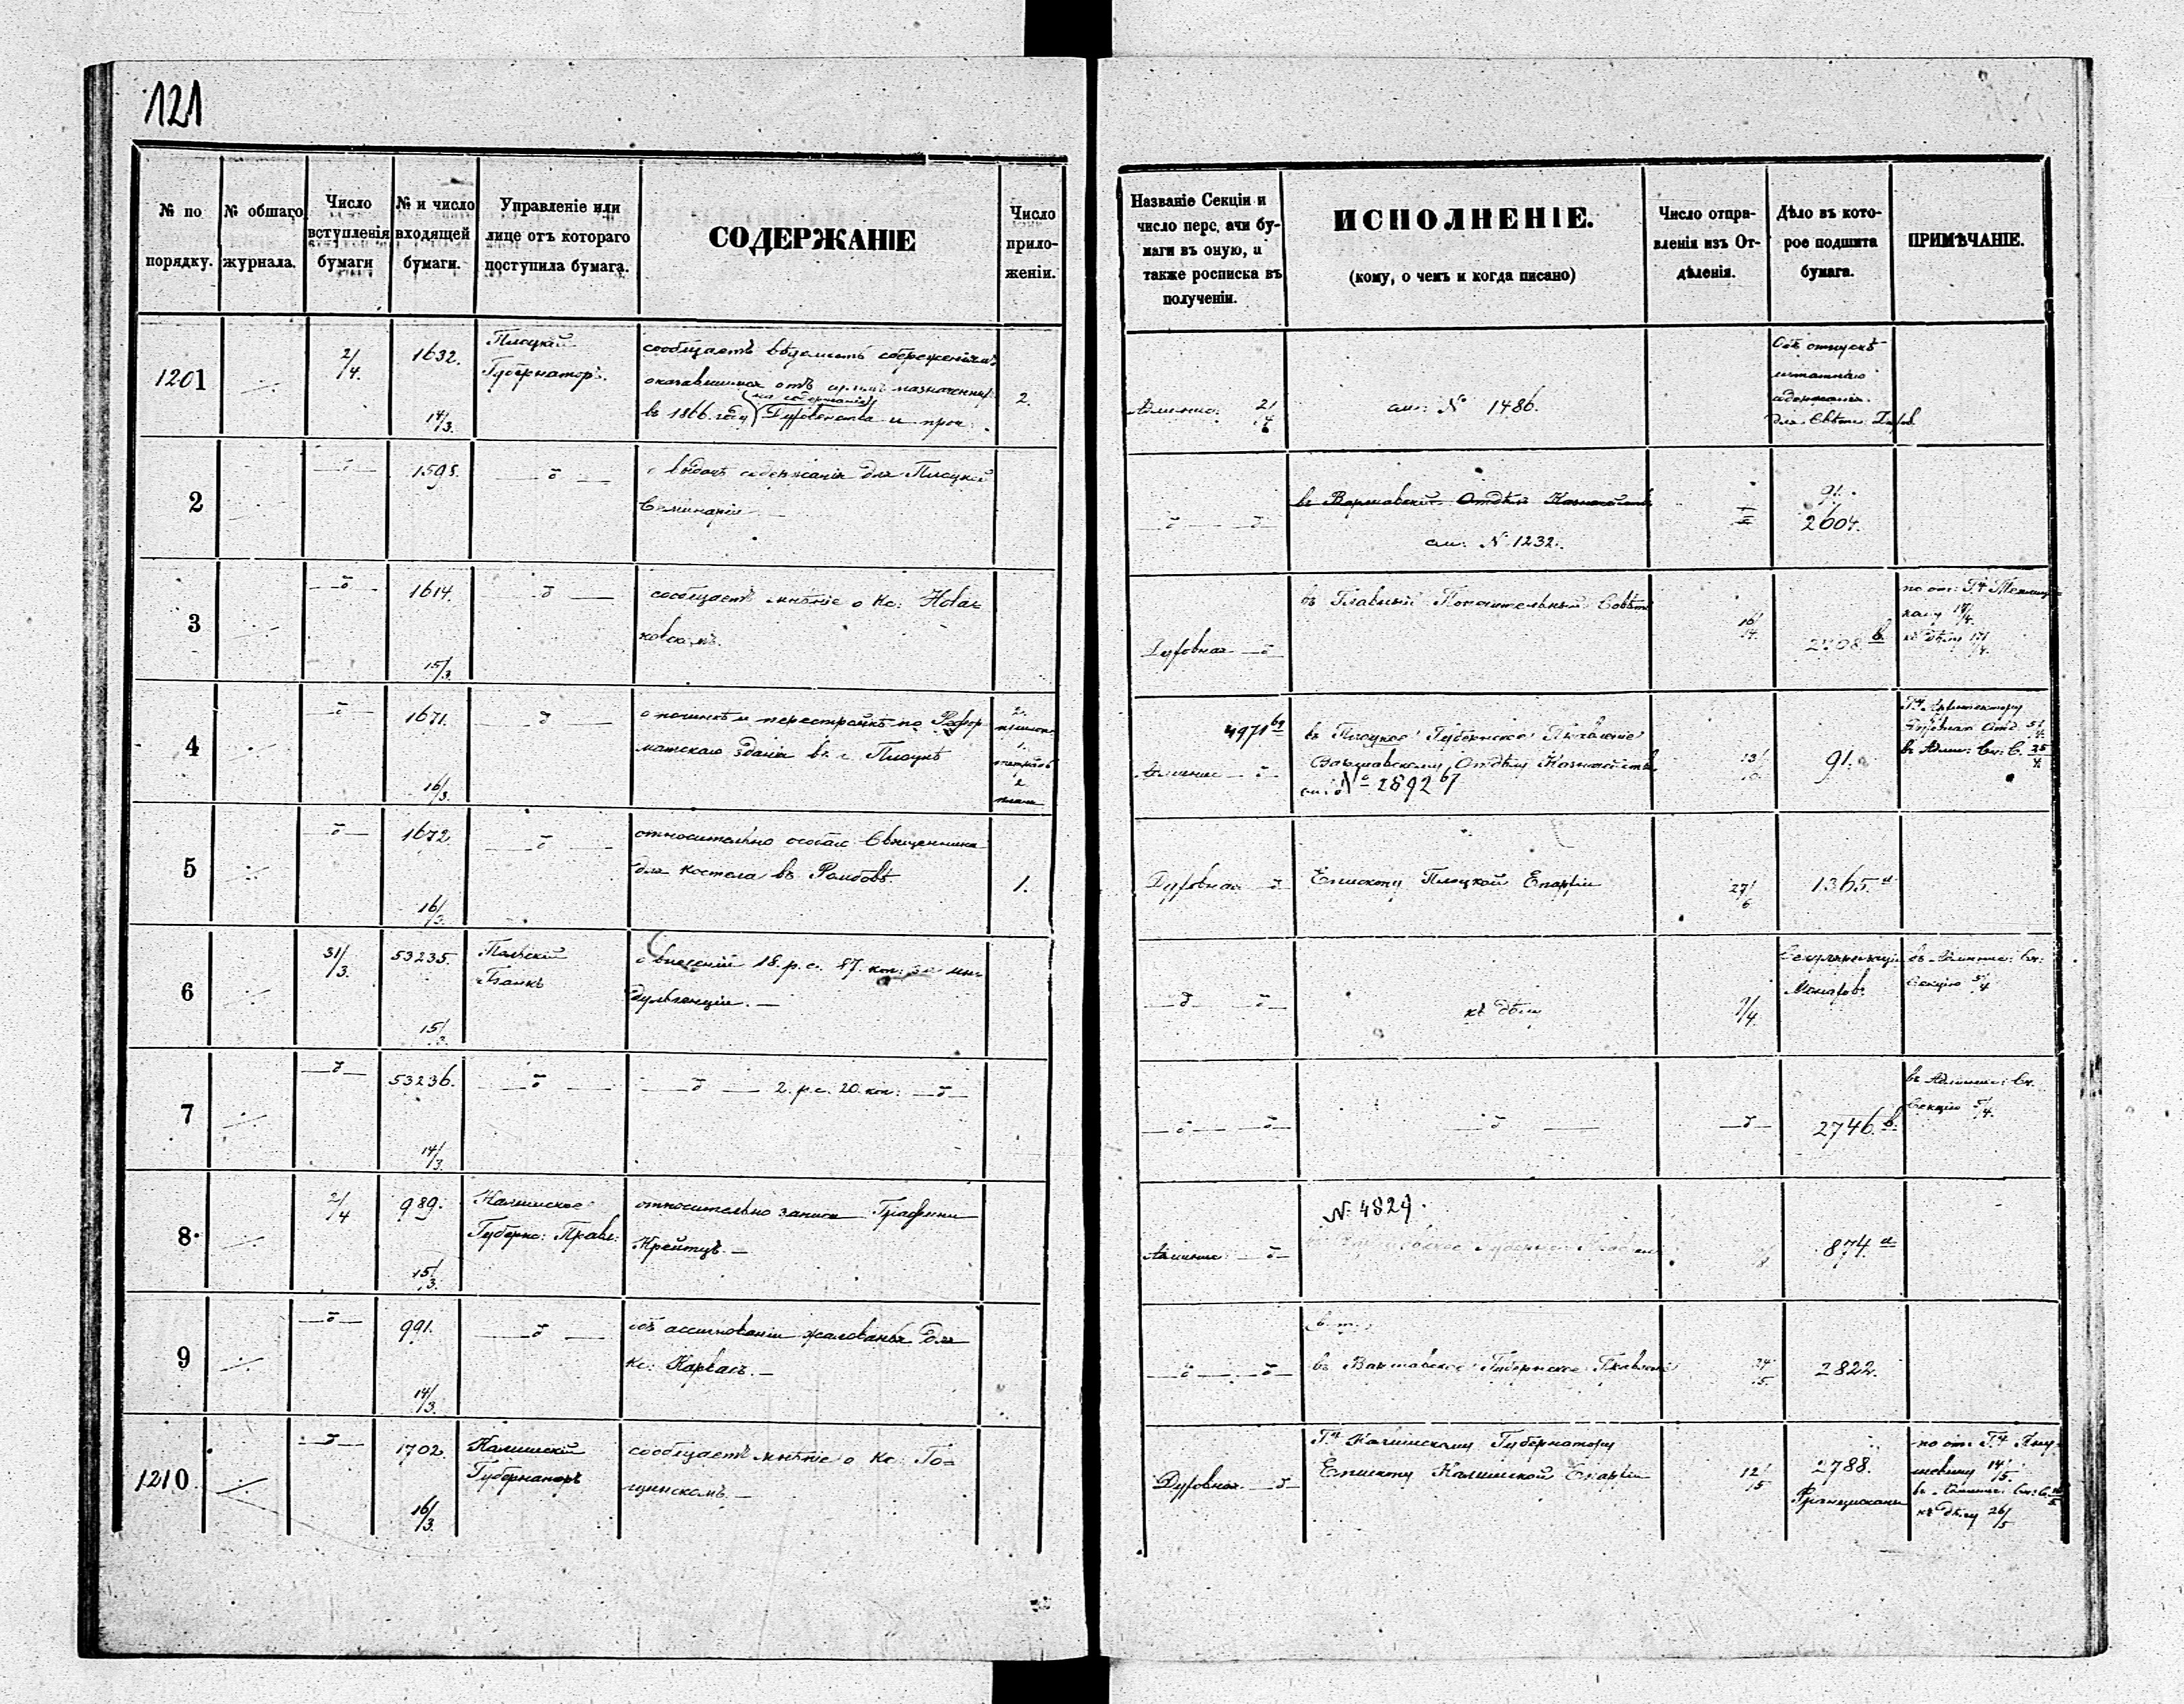 121
№ по порядку.
№ общаго журнала.
Число вступленія бумаги
№ и число входящей бумаги.
Управленіе или лице отъ котораго поступила бумага.
СОДЕРЖАНІЕ
Число приложеніи.
Названіе Секціи и число перс, ачи бумаги въ оную, и также росписка въ полученіи.
ИСПОЛНЕНІЕ.
(кому, о чемъ и когда писано)
Число отправленія изъ Отдѣленія.
Дѣло въ которое подшита бумага.
ПРИМѢЧАНІЕ.
1201
2/4.
1632.
14/3.
Плоцкій
Губернаторъ.
сообщаетъ вѣдомость сбереженіямъ
оказавшимся отъ суммъ назначенныхъ
на содержаніе
въ 1866 году Духовенства и проч.
2.
см: № 1486.
Объ отпускѣ
штатнаго
содержанія
для Свѣтс: Духов.
2
1595.
о выдачѣ содержанія для Плоцкой
Семинаріи
въ Варшавскій Отдѣлъ Казначейства
см: № 1232.
91.
2604.
3
1614.
15/3.
сообщаетъ мнѣніе о Кс: Новаковскомъ.
Духовная
въ Главный Попечительный Совѣтъ
16/4.
2708 в.
4
1671.
16/3.
о починкѣ и перестройкѣ по Реформатскаго зданія въ г. Плоцкѣ
2.
1.
2
4971
въ Плоцкое Губернское Правленіе
Варшавскому Отдѣлу Казначейства
см: № 2892 67
91.
5
1672
16/3.
относительно особаго Священника
для костела въ Ромбовѣ.
1.
Духовная
Епископу Плоцкой Епархіи
27/6
1365. а
6
31/3.
53235.
15/3.
Польскій
Банкъ
о внесеніи 18. р.с. 87. коп: за индульгенціи.
къ дѣлу
7/4.
7
53236.
14/3.
2. р.с. 20. коп:
2746. в.
Секцію 5/4.
8
2/4
989.
15/3.
Калишское
Губернс: Правл:
относительно записи Графини
Крейтцъ.
№ 4829.
874. а
9
991.
14/3.
объ ассигнованіи жалованья для
Кс: Карвасъ.
въ Варшавское Губернское Правленіе
24/5.
2822.
1210
1702.
16/3.
Калишскій
Губернаторъ
сообщаетъ мнѣніе о Кс: Гощинскомъ.
Духовная
Гну Калишскому Губернатору
Епископу Калишской Епархіи
12/5
2788.
Францискане
къ дѣлу 26/5